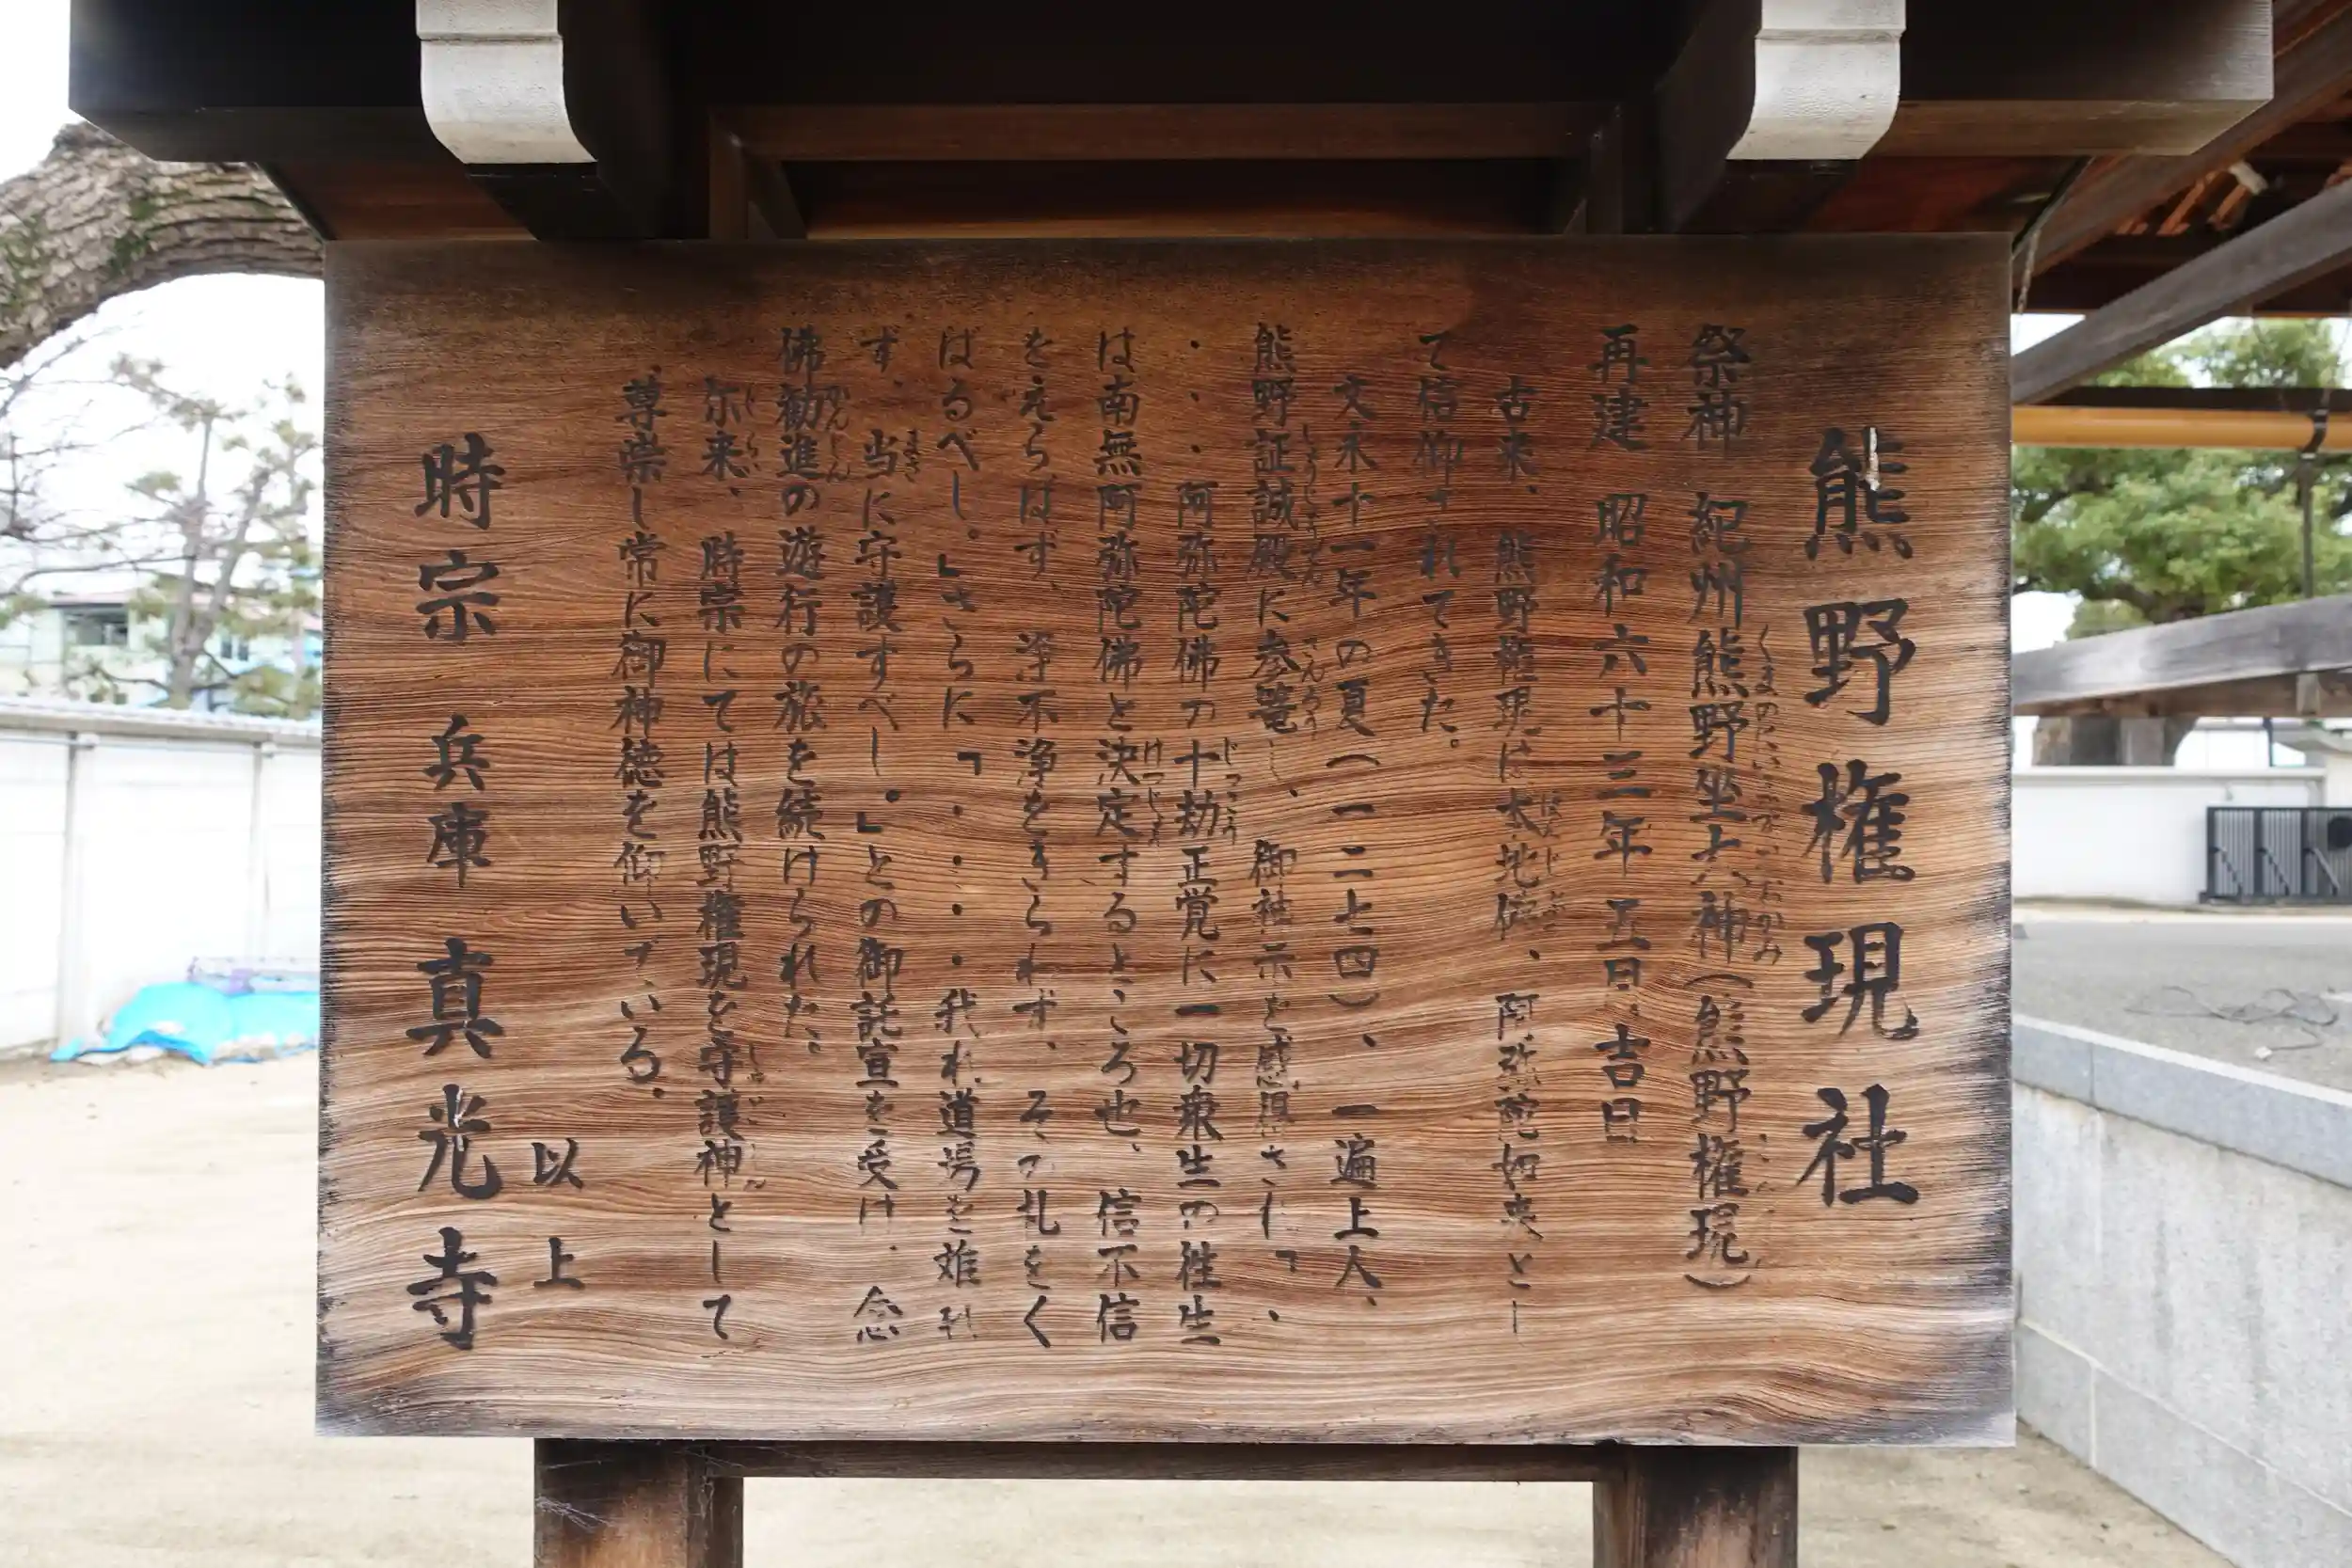 熊野権現社
祭神 紀州熊野坐大神(熊野権現)
再建 昭和六十三年五月吉日
古来、熊野権現は本地佛、阿弥陀如来とし
て信仰されてきた。
文永十一年の夏(一二七四)、一遍上人、
熊野証誠殿に参篭し、御社示を感得され「、
・、・阿弥陀佛の十劫正覚に一切衆生の往生
は南無阿弥陀佛と決定するところ也、信不信
をえらばず、浄不浄をきらわず、その札をく
ばるべし。」さらに「・・・・我れ道場を離れ
ず、当に守護すべし。」との御託宣を受け、念
佛勧進の遊行の旅を続けられた。
尓来、時宗にては熊野権現を守護神として
尊崇し常に御神徳を仰いでいる。
以上
時宗 兵庫 真光寺